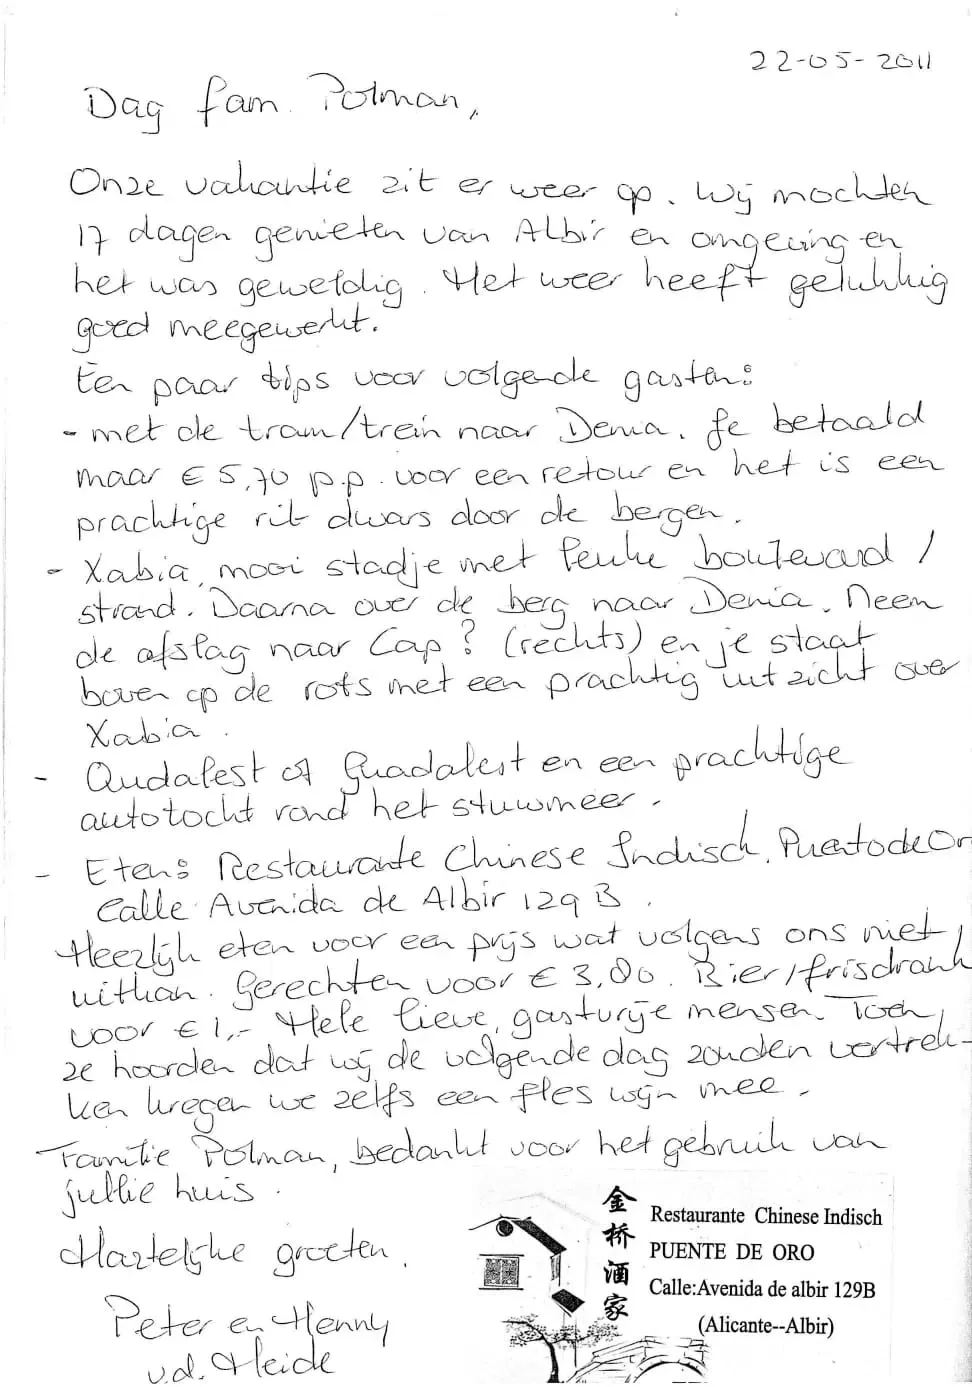 22-05-2011
Dag fam. Polman,
Onze vakantie zit er weer op. Wij mochten
17 dagen genieten van Albir en omgeving en
het was geweldig. Het weer heeft gelukkig
goed meegewerkt.
Een paar tips voor volgende gasten:
- met de tram/trein naar Denia. Je betaald
maar € 5,70 p.p. voor een retour en het is een
prachtige rit dwars door de bergen.
- Xabia, mooi stadje met leuke boulevard /
strand. Daarna over de berg naar Denia. Neem
de afslag naar Cap? (rechts) en je staat
boven op de rots met een prachtig uitzicht over
Xabia.
- Qudalest of Guadalest en een prachtige
autotocht rond het stuwmeer.
- Eten: Restaurante Chinese Indisch, Puentode Oro
Calle Avenida de Albir 129 B.
Heerlijk eten voor een prijs wat volgens ons niet
uitkan. Gerechten voor € 3,80. Bier/frisdrank
voor € 1,- Hele lieve, gastvrije mensen. Toen
ze hoorden dat wij de volgende dag zouden vertrek-
ken kregen we zelfs een fles wijn mee.
Familie Polman, bedankt voor het gebruik van
jullie huis.
Hartelijke groeten,
Peter en Henny
v.d. Heide
金桥酒家
Restaurante Chinese Indisch
PUENTE DE ORO
Calle:Avenida de albir 129B
(Alicante--Albir)